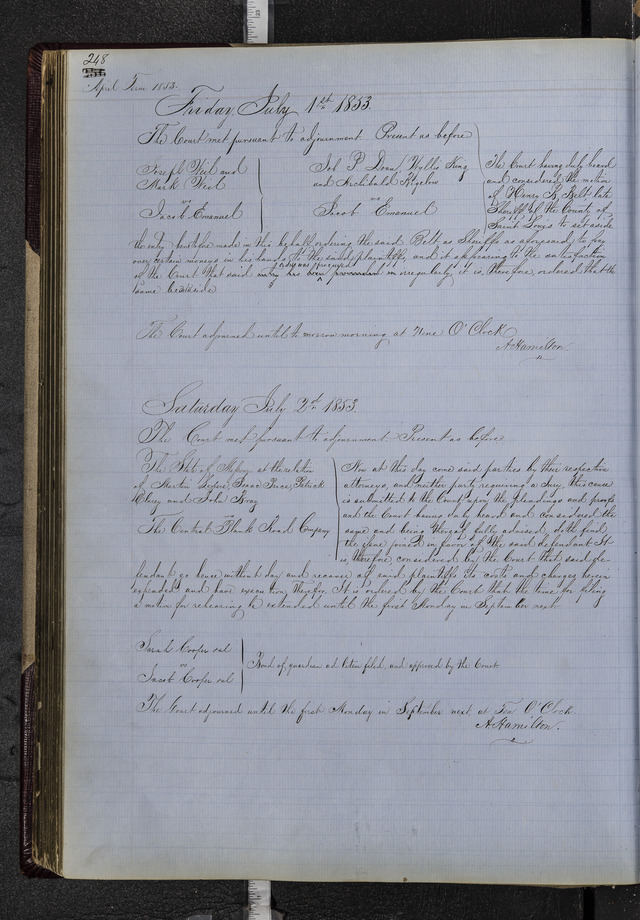 248
April Term 1853.
Friday, July 1st 1853.
The Court met pursuant to adjournment. Present as before
Joseph Weil and
Mark Weil
vs
Jacob Emanuel
Job P Doan, Wyllis King
and Archibald Bigelow
vs
Jacob Emanuel
The Court having duly heard
and considered the motion
of Henry B. Belt late
Sheriff of the County of
Saint Louis to set aside
the entry heretofore made in this behalf ordering the said Belt as Sheriff as aforesaid to pay
over certain moneys in his hands to the said plaintiffs, and it appearing to the satisfaction
of the Court that said entry has been irregularly it is, therefore, ordered that the
same be aside
The Court adjourned until to morrow morning at Nine O'Clock
A. Hamilton
Saturday July 2nd 1853.
The Court met pursuant to adjournment. Present as before
The State of Missouri at the relation
of Martin Isaac Patrick
and John
vs
The Central Plank Road Company
Now at this day come said parties by their respective
attorneys, and neither party requiring a Jury, this cause
is submitted to the Court upon the pleadings and proofs
and the Court having duly heard and considered the
same and being thereof fully advised, doth find
the issue joined in favor of the said defendant. It
is, therefore considered by the Court that said de-
fendant go hence without day and recover of said plaintiffs its costs and charges herein
expended and have execution therefor. It is ordered by the Court that the time for filing
a motion for rehearing be extended until the first Monday in September next
Sarah Cooper et al
vs
Jacob Cooper et al
Bond of guardian ad litem filed, and approved by the Court
The Court adjourned until the first Monday in September next at Ten O'Clock.
A. Hamilton.